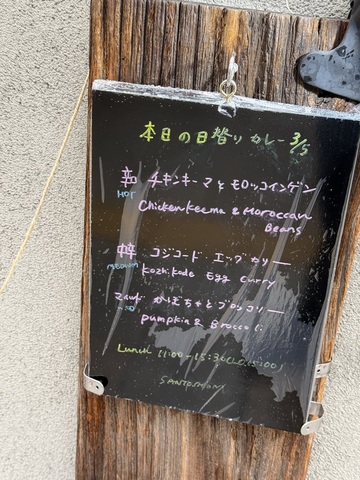 本日の日替りカレー 3/5
辛 チキンキーマとモロッコインゲン
HOT
Chicken Keema & Moroccan
Beans
中辛 コジコード エッグカリー
MEDIUM Kozhikode Egg Curry
マイルド かぼちゃとブロッコリー
pumpkin & Broccoli
Lunch 11:00-15:30